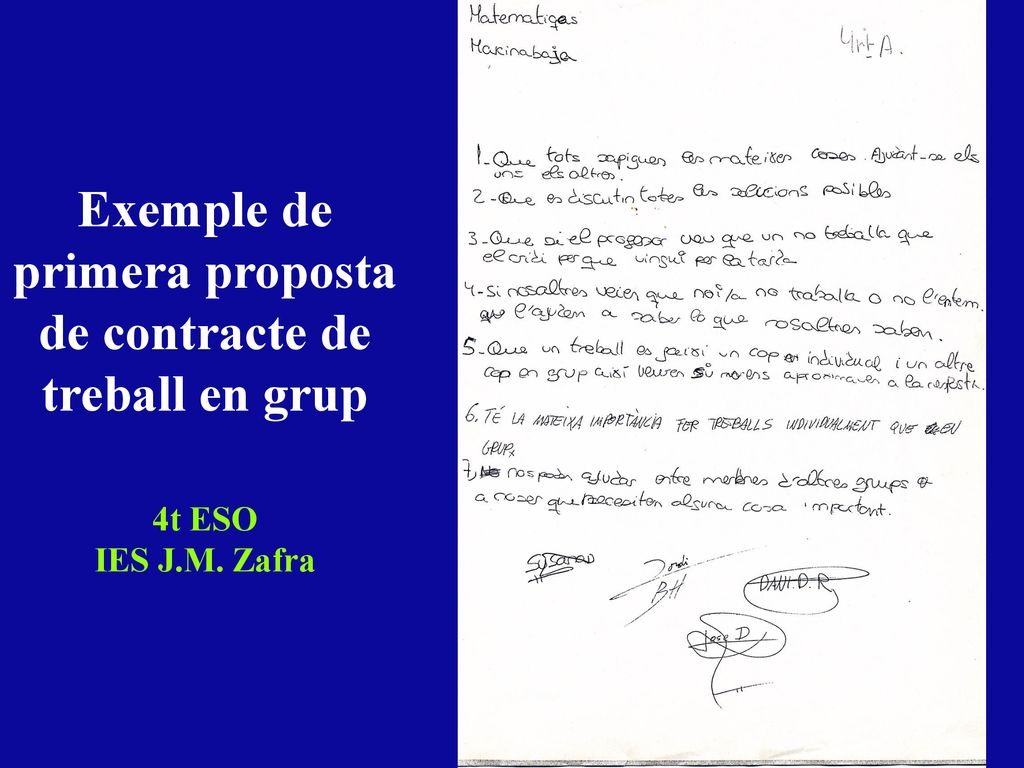 Exemple de
primera proposta
de contracte de
treball en grup
4t ESO
IES J.M. Zafra
Matematiques
Makinabaja
4rt A.
1-Que tots sapigues les mateixes coses. Ajudant-se els
uns els altres.
2-Que es discutin totes les solucions posibles
3-Que si el profesor veu que un no treballa que
el cridi perque vingui per la tarda
4-Si nosaltres veiem que noi/a no traballa o no l'entem.
que l'ajudem a saber lo que nosaltres sabem.
5-Que un treball es faixi un cop en individual i un altre
cop en grup aixi veurem si mes ens aproximavem a la resposta.
6. TÉ LA MATEIXA IMPORTÀNCIA FER TREBALLS INDIVIDUALMENT QUE EN
GRUP.
7, nos poden ajudar entre membres d'altres grups
a no ser que necesiten alguna cosa important.
Jordi
BH
DANI.D.R.
Jose D.